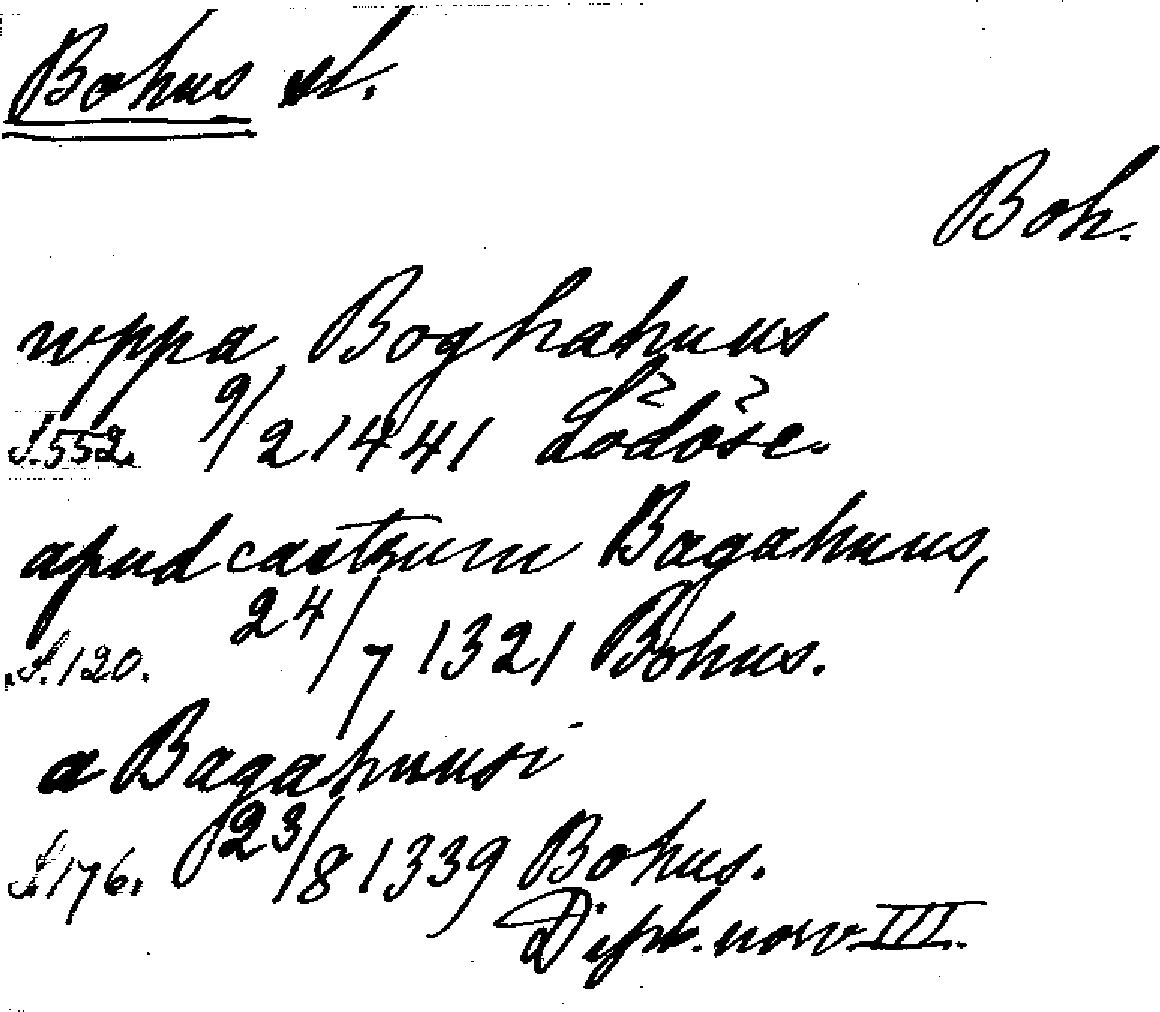 Bohus sl.
Boh.
wppa Boghahuus
S. 552. 9/2 1441 Lödöse.
apud castrum Bagahuus,
S. 120. 24/7 1321 Bohus.
a Bagahuusi
S. 176. 23/8 1339 Bohus.
Dipl. norv. III.